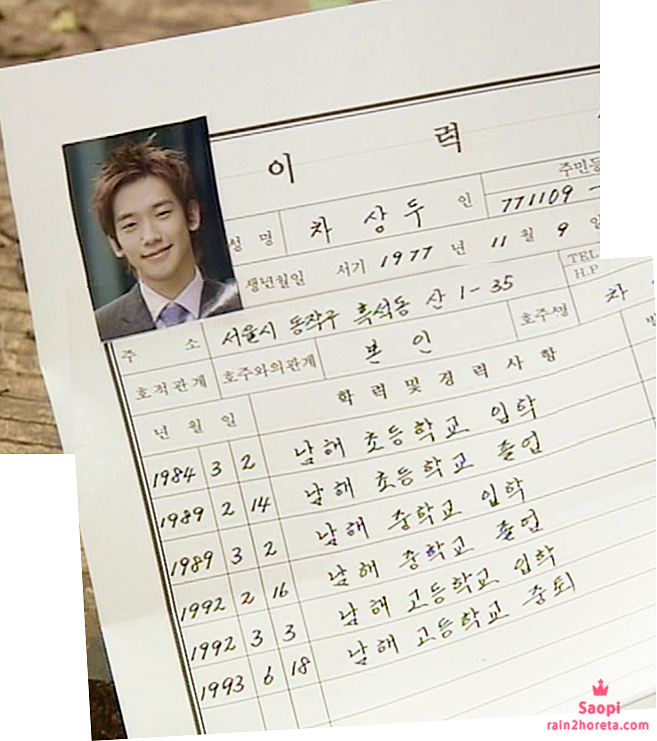 이 력
주민등
성 명 차 상 두 인 771109 -
생년월일 서기 1977 년 11 월 9 일
TEL
H.P
주 소 서울시 동작구 흑석동 산 1- 35
호적관계 호주와의관계 본 인 호주성 차
년 월 일 학 력 및 경 력 사 항
1984 3 2 남해 초등학교 입학
1989 2 14 남해 초등학교 졸업
1989 3 2 남해 중학교 입학
1992 2 16 남해 중학교 졸업
1992 3 3 남해 고등학교 입학
1993 6 18 남해 고등학교 중퇴
Saopi
rain2horeta.com